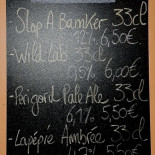 - Slop A Bamker 33cl
12% 6,50€.
- Wild Lab 33cl
0,5% 6,00€.
- Périgord Pale Ale 33cl
6,1% 5,50€
- Lapépie Ambrée 33cl
5,50€